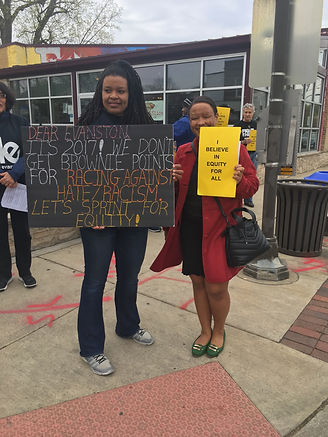 DEAR EVANSTON,
IT'S 2017! WE DON'T
GET BROWNIE POINTS
FOR RACING AGAINST
HATE/RACISM.
LET'S SPRINT FOR
EQUITY!
I
BELIEVE
IN
EQUITY
FOR
ALL